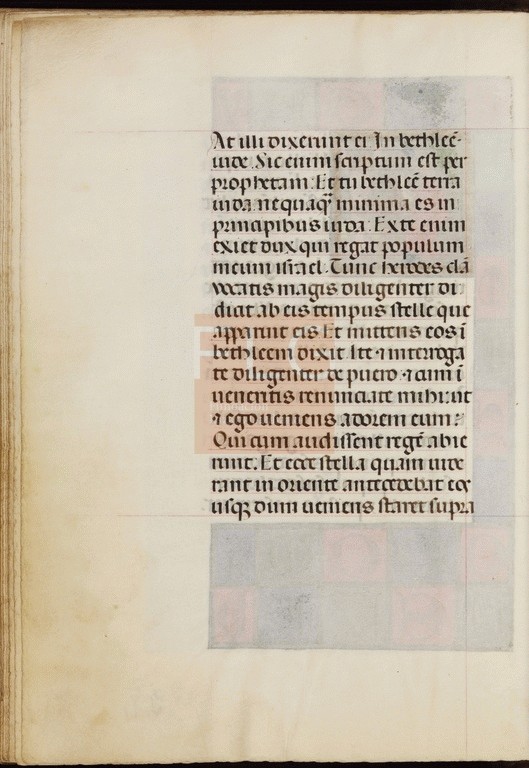 At illi dixerunt ei In bethleē
iude. Sic enim scriptum est per
prophetam. Et tu bethleē terra
iuda nequaq̄ minima es in
principibus iuda. Ex te enim
exiet dux qui regat populum
meum israel. Tunc herodes clā
vocatis magis diligenter di
dicit ab eis tempus stelle que
apparuit eis Et mittens eos ī
bethleem dixit. Ite ⁊ interroga
te diligenter de puero ⁊ cum ī
ueneritis renunciate mihi: ut
⁊ ego ueniens adorem eum:
Qui cum audissent regē abie
runt. Et ecce stella quam uide
rant in oriente antecedebat eos
usq; dum ueniens staret supra